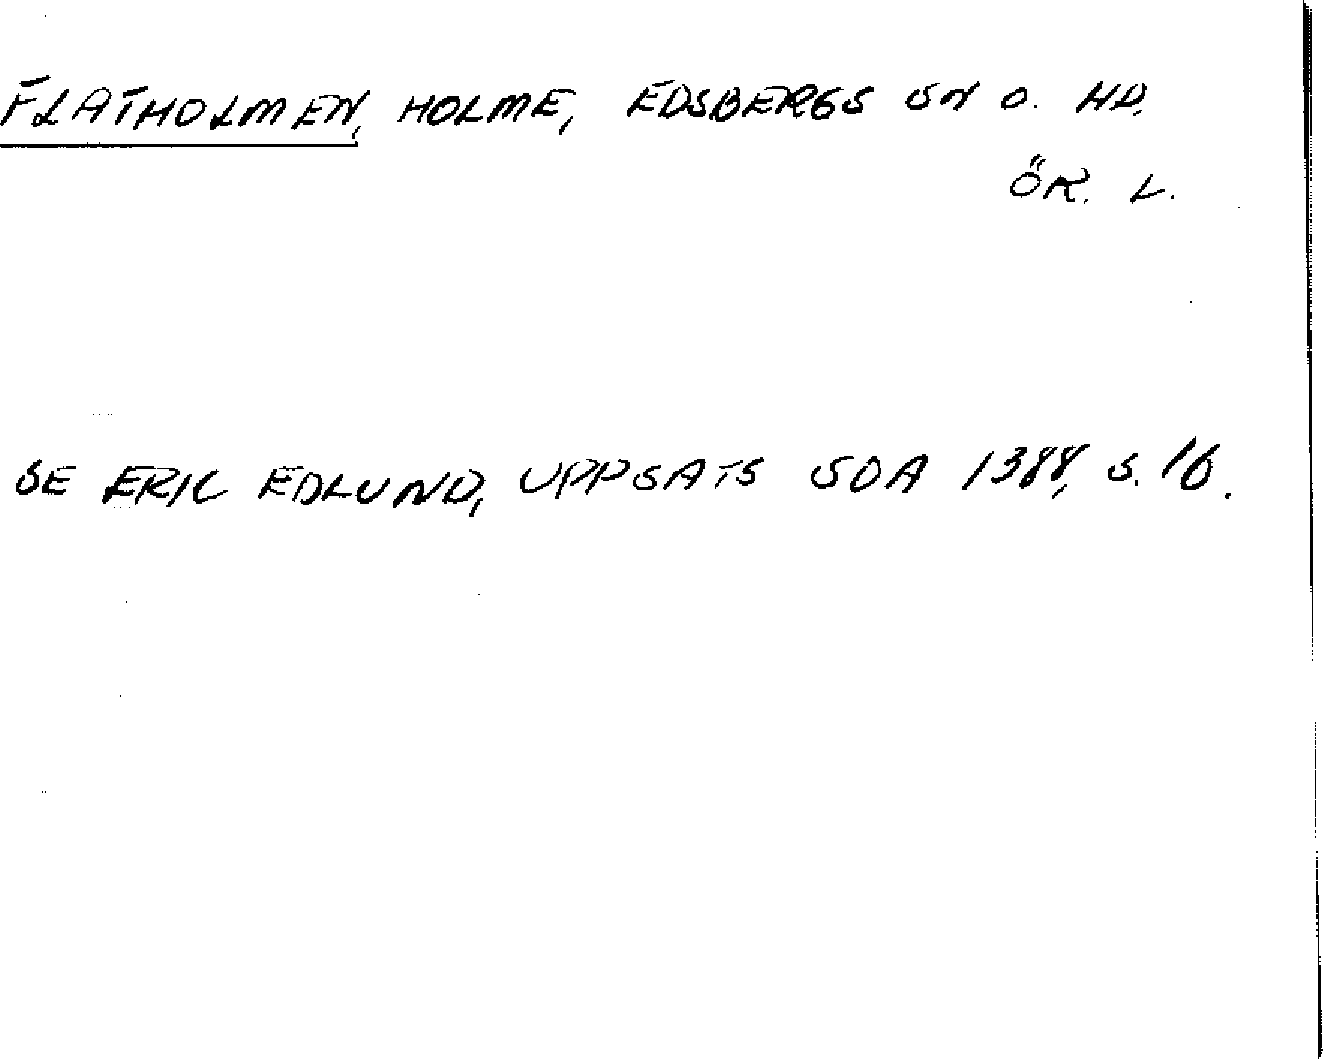 FLATHOLMEN, HOLME, EDSBERGS SN O. HD.
ÖR. L.
SE ERIC EDLUND, UPPSATS SOA 1388, S. 16.